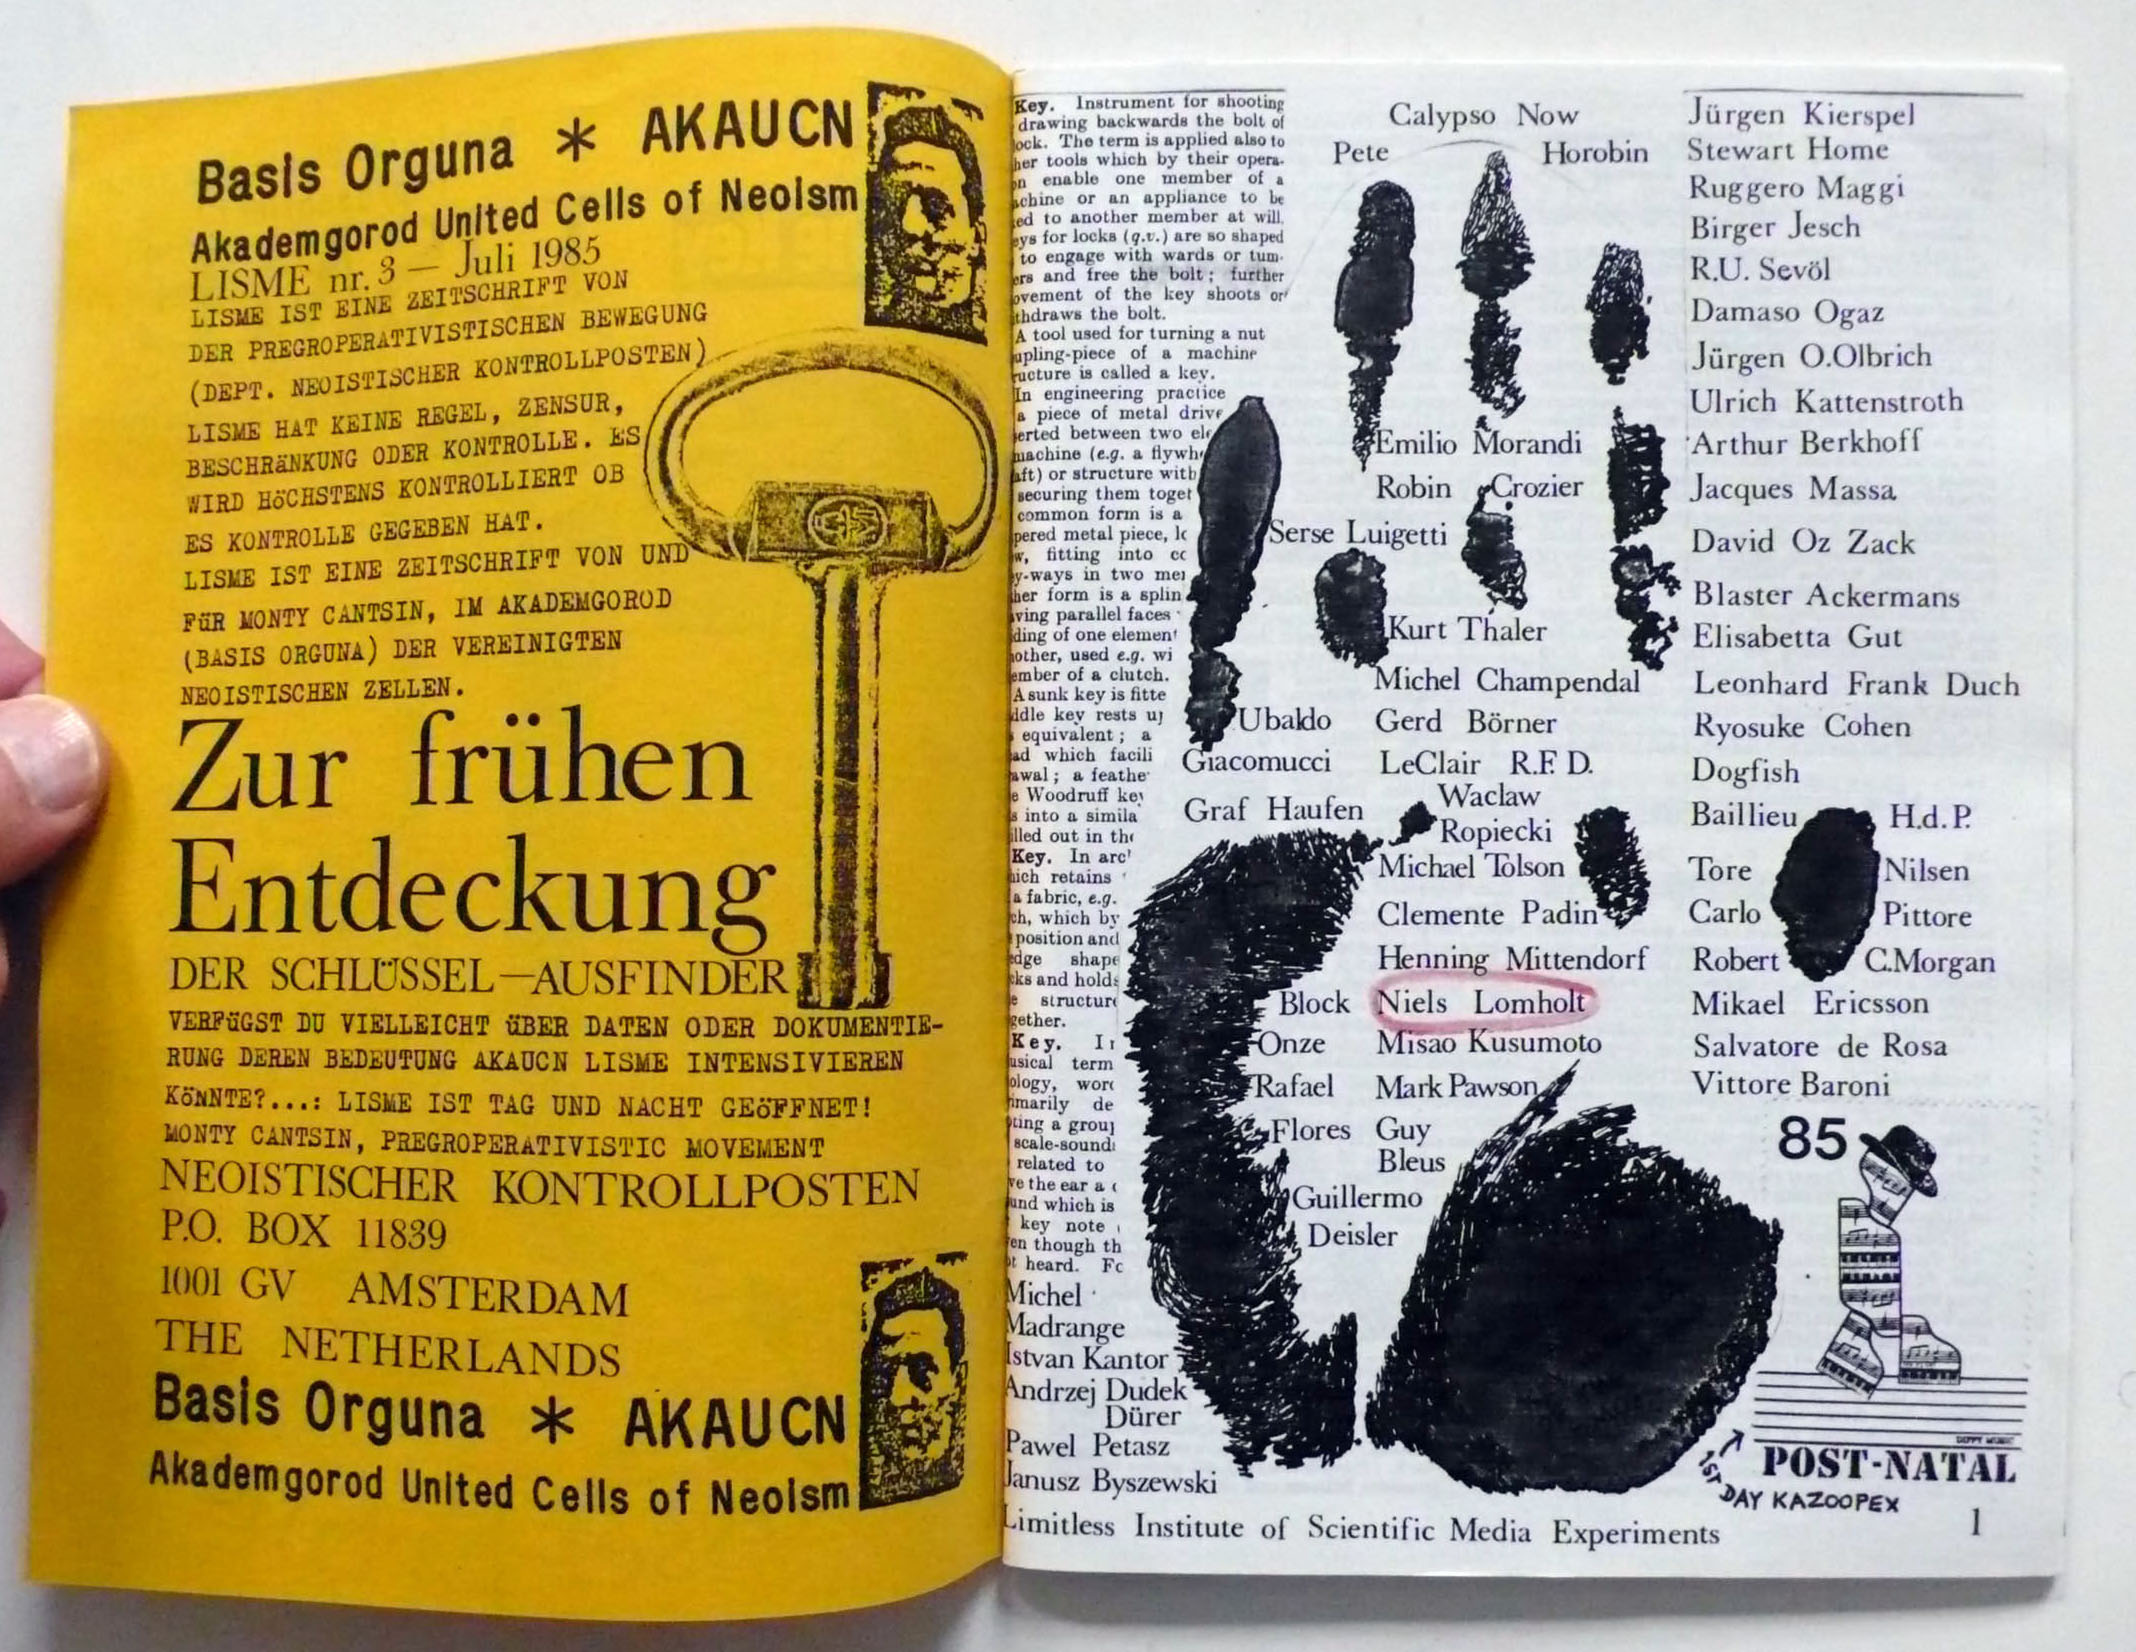 Basis Orguna * AKAUCN
Akademgorod United Cells of Neoism
LISME nr. 3 — Juli 1985
LISME IST EINE ZEITSCHRIFT VON
DER PREGROPERATIVISTISCHEN BEWEGUNG
(DEPT. NEOISTISCHER KONTROLLPOSTEN)
LISME HAT KEINE REGEL, ZENSUR,
BESCHRäNKUNG ODER KONTROLLE. ES
WIRD HöCHSTENS KONTROLLIERT OB
ES KONTROLLE GEGEBEN HAT.
LISME IST EINE ZEITSCHRIFT VON UND
FüR MONTY CANTSIN, IM AKADEMGOROD
(BASIS ORGUNA) DER VEREINIGTEN
NEOISTISCHEN ZELLEN.
Zur frühen
Entdeckung
DER SCHLÜSSEL—AUSFINDER
VERFüGST DU VIELLEICHT üBER DATEN ODER DOKUMENTIE-
RUNG DEREN BEDEUTUNG AKAUCN LISME INTENSIVIEREN
KöNNTE?...: LISME IST TAG UND NACHT GEöFFNET!
MONTY CANTSIN, PREGROPERATIVISTIC MOVEMENT
NEOISTISCHER KONTROLLPOSTEN
P.O. BOX 11839
1001 GV AMSTERDAM
THE NETHERLANDS
Basis Orguna * AKAUCN
Akademgorod United Cells of Neoism
Key. Instrument for shooting
drawing backwards the bolt of
ock. The term is applied also to
her tools which by their opera-
on enable one member of a
achine or an appliance to be
ed to another member at will.
eys for locks (q.v.) are so shaped
to engage with wards or tum-
ers and free the bolt; further
ovement of the key shoots or
thdraws the bolt.
A tool used for turning a nut
upling-piece of a machine
ructure is called a key.
In engineering practice
a piece of metal drive
erted between two ele
machine (e.g. a flywhe
aft) or structure with
securing them toget
common form is a
pered metal piece, lo
w, fitting into co
y-ways in two mer
her form is a splin
ving parallel faces
ding of one element
other, used e.g. wi
ember of a clutch.
A sunk key is fitte
ddle key rests u
equivalent; a
ad which facili
awal; a feathe
e Woodruff key
s into a simila
illed out in the
Key. In arc
hich retains
a fabric, e.g.
ch, which by
position and
edge shape
cks and holds
e structure
gether.
Key. I
usical term
ology, wor
imarily de
ting a grou
scale-sound
related to
ve the ear a
und which is
key note
en though th
t heard. Fo
Michel
Madrange
Istvan Kantor
Andrzej Dudek
Dürer
Pawel Petasz
Janusz Byszewski
Calypso Now
Pete Horobin
Emilio Morandi
Robin Crozier
Serse Luigetti
Kurt Thaler
Michel Champendal
Ubaldo Gerd Börner
Giacomucci LeClair R.F. D.
Graf Haufen Waclaw
Ropiecki
Michael Tolson
Clemente Padin
Henning Mittendorf
Block Niels Lomholt
Onze Misao Kusumoto
Rafael Mark Pawson
Flores Guy
Bleus
Guillermo
Deisler
Jürgen Kierspel
Stewart Home
Ruggero Maggi
Birger Jesch
R.U. Sevöl
Damaso Ogaz
Jürgen O.Olbrich
Ulrich Kattenstroth
Arthur Berkhoff
Jacques Massa
David Oz Zack
Blaster Ackermans
Elisabetta Gut
Leonhard Frank Duch
Ryosuke Cohen
Dogfish
Baillieu H.d.P.
Tore Nilsen
Carlo Pittore
Robert C.Morgan
Mikael Ericsson
Salvatore de Rosa
Vittore Baroni
85
POST-NATAL
1ST DAY KAZOOPEX
Limitless Institute of Scientific Media Experiments
1